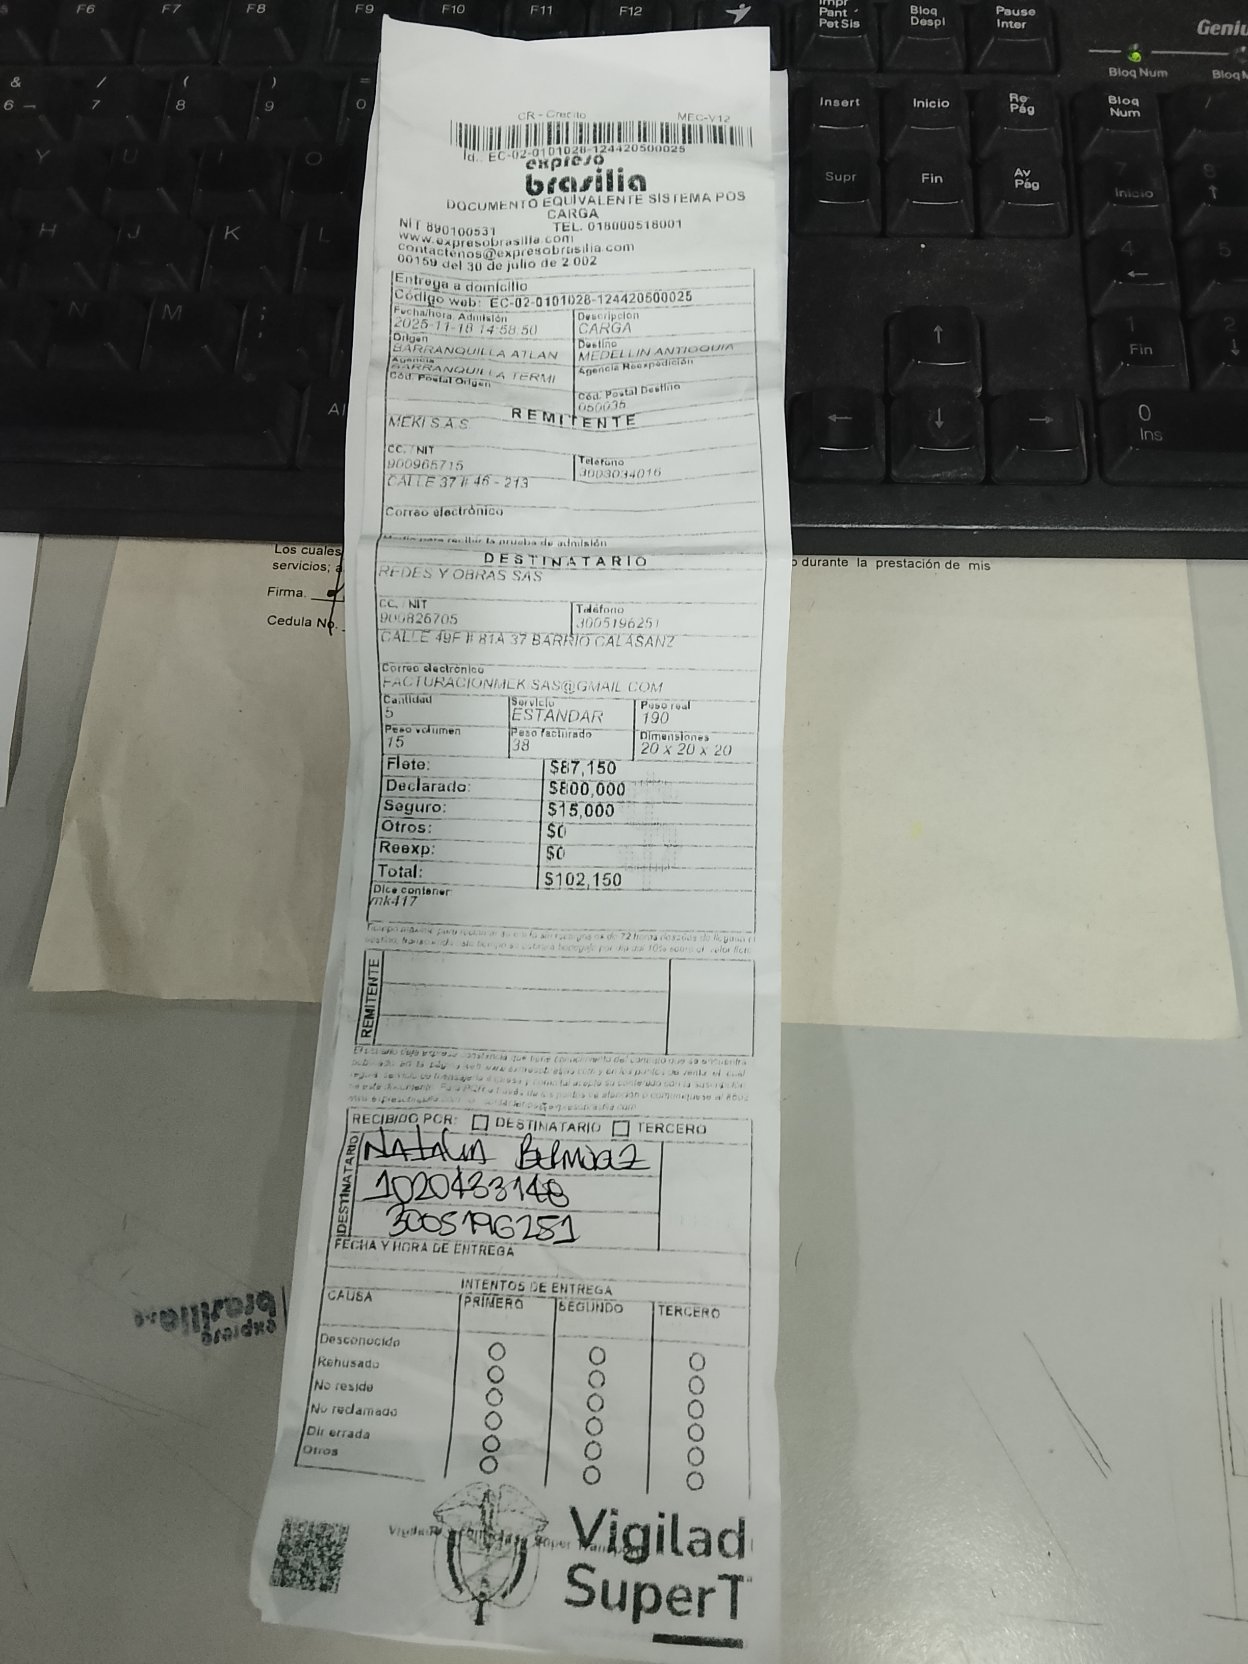 CR - Credito MEC-V12
Id.: EC-02-0101028-124420500025
expreso
brasilia
DOCUMENTO EQUIVALENTE SISTEMA POS
CARGA
NIT 890100531 TEL. 018000518001
www.expresobrasilia.com
contactenos@expresobrasilia.com
00159 del 30 de julio de 2.002
Entrega a domicilio
Código web: EC-02-0101028-124420500025
Fecha/hora. Admisión Descripcion
2025-11-18 14:58:50 CARGA
Origen Destino
BARRANQUILLA ATLAN MEDELLIN ANTIOQUIA
Agencia Agencia Reexpedición
BARRANQUILLA TERMI
Cód. Postal Origen Cód. Postal Destino
050035
REMITENTE
MEKI S.A.S
CC. / NIT Teléfono
900965715 3003034016
CALLE 37 # 46 - 213
Correo electrónico
Medio para recibir la prueba de admisión
DESTINATARIO
REDES Y OBRAS SAS
CC. / NIT Teléfono
900826705 3005196251
CALLE 49F # 81A 37 BARRIO CALASANZ
Correo electrónico
FACTURACIONMEK.SAS@GMAIL.COM
Cantidad Servicio Peso real
5 ESTANDAR 190
Peso volumen Peso facturado Dimensiones
15 38 20 x 20 x 20
Flete: $87,150
Declarado: $800,000
Seguro: $15,000
Otros: $0
Reexp: $0
Total: $102,150
Dice contener:
mk417
REMITENTE
RECIBIDO POR: DESTINATARIO TERCERO
DESTINATARIO
NATALIA
1020433148
3005196251
FECHA Y HORA DE ENTREGA
INTENTOS DE ENTREGA
CAUSA PRIMERO SEGUNDO TERCERO
Desconocido
Rehusado
No reside
No reclamado
Dir errada
Otros
Vigilad
SuperT
Los cuales
servicios; a
Firma.
Cedula No.
o durante la prestación de mis
expreso
brasilia
F6 F7 F8 F9 F10 F11 F12
Impr
Pant
Pet Sis
Bloq
Despl
Pause
Inter
Genius
Bloq Num
Insert Inicio Re Pág Bloq Num
Supr Fin Av Pág
7 Inicio
4
1 Fin
2
0 Ins
& 6
/ 7
( 8
) 9
= 0
Y U I O
H J K L
N M